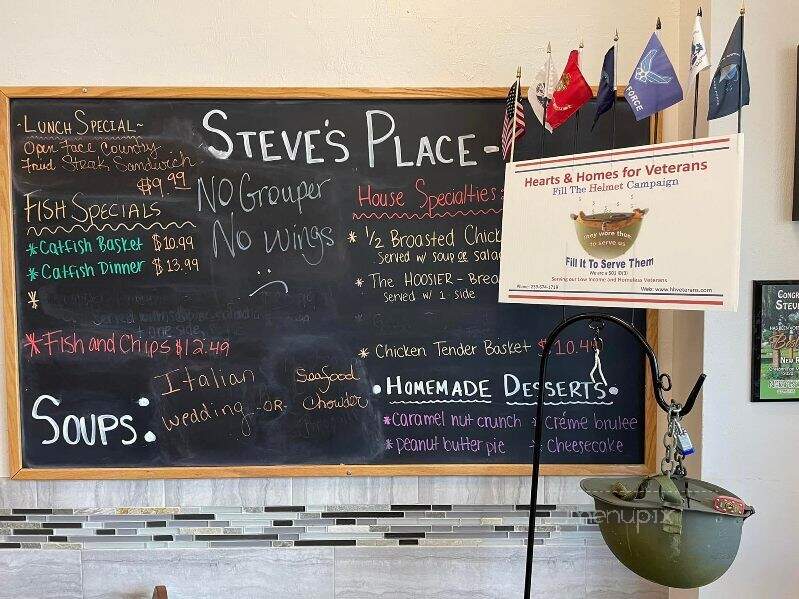 ~Lunch Special~
Open Face Country
Fried Steak Sandwich
$9.99
Fish Specials
*Catfish Basket $10.99
*Catfish Dinner $13.99
*
*Fish and Chips $12.49
Soups:
Italian
wedding -OR-
Seafood
Chowder
Steve's Place-
No Grouper
No wings
House Specialties:
* 1/2 Broasted Chick
Served w/ soup or salad
* The HOOSIER - Brea
Served w/ 1 side
* Chicken Tender Basket $10.49
• Homemade Desserts •
*caramel nut crunch * créme brulee
*peanut butter pie * cheesecake
Hearts & Homes for Veterans
Fill The Helmet Campaign
They wore them
to serve us
Fill It To Serve Them
We are a 501 (C)(3)
Serving our Low Income and Homeless Veterans
Web: www.hhveterans.com
FORCE
CONGR
STEV
menupix